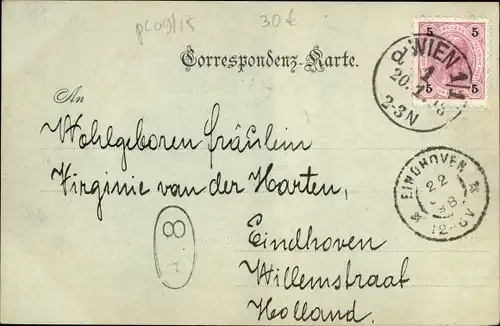 pC09/15
30 €
Correspondenz-Karte.
5 5
5 5
WIEN 1/1
1
20.
2-3N
An
Wohlgeboren Fräulein
Virginie van der Harten,
EINDHOVEN
22
98
12-6V
8
Eindhoven
Willemstraat
Holland.